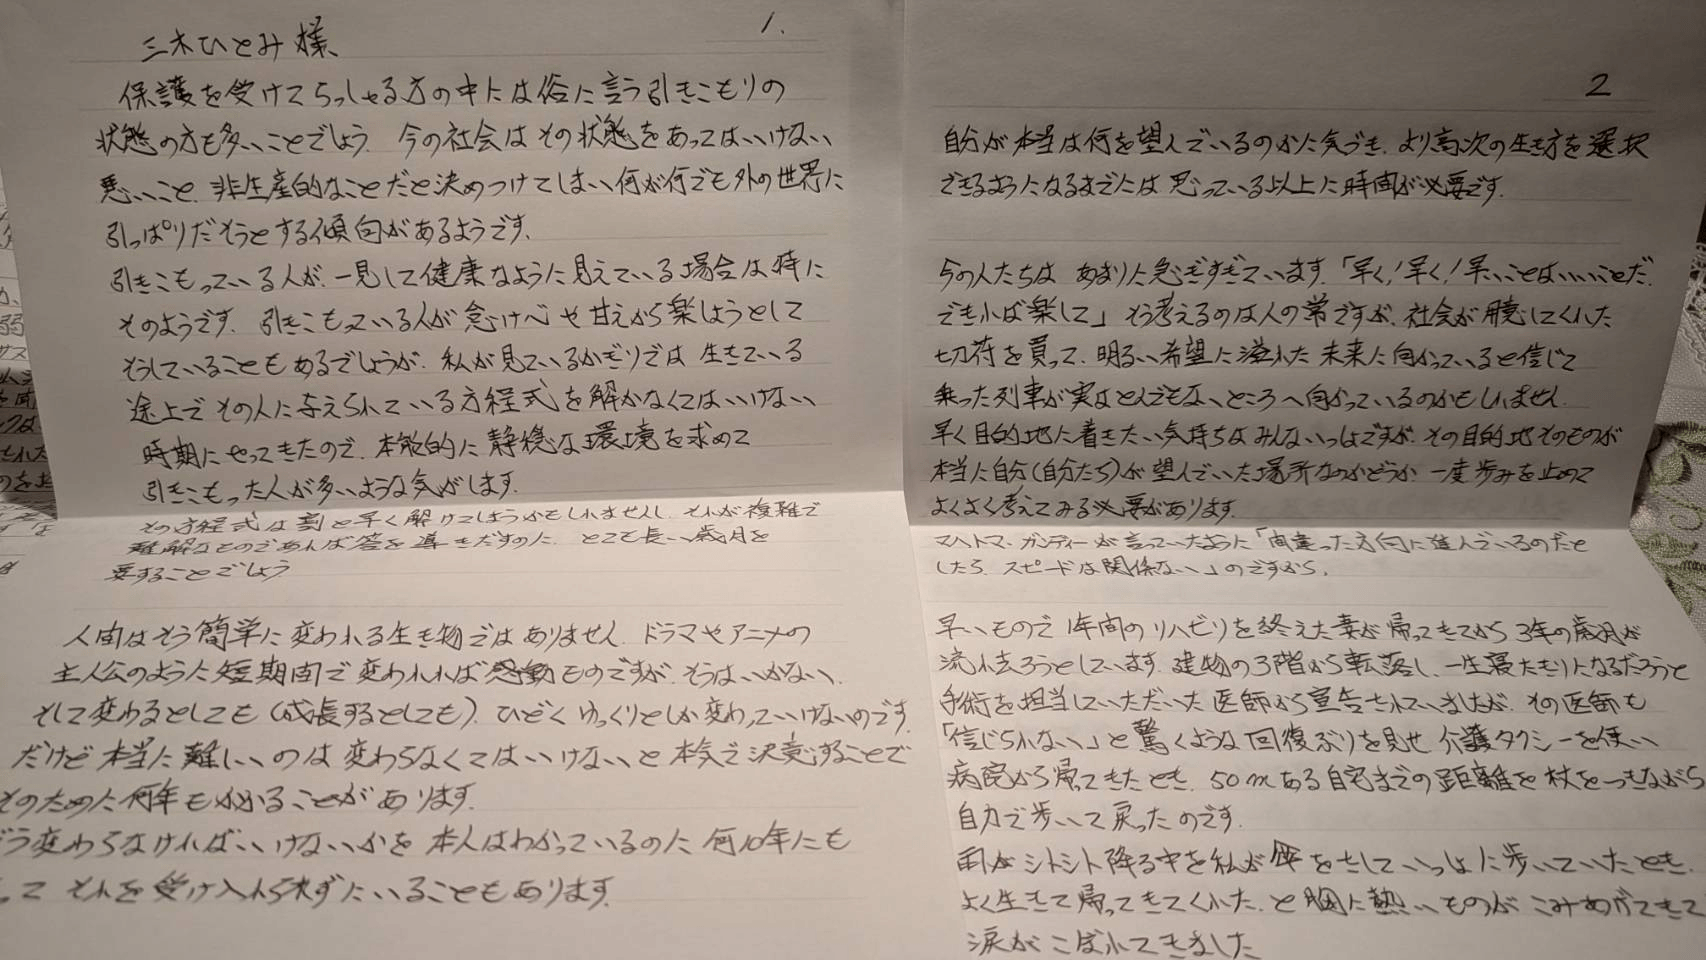 1.
三木ひとみ様、
保護を受けてらっしゃる方の中には俗に言う引きこもりの
状態の方も多いことでしょう。今の社会はその状態をあってはいけない
悪いこと、非生産的なことだと決めつけてしまい何が何でも外の世界に
引っぱりだそうとする傾向があるようです。
引きこもっている人が、一見して健康なように見えている場合は特に
そのようです。引きこもっている人が怠けべや甘えから楽しようとして
そうしていることもあるでしょうが、私が見ているかぎりでは生きている
途上でその人に与えられている方程式を解かなくてはいけない
時期にやってきたので、本能的に静穏な環境を求めて
引きこもった人が多いような気がします。
その方程式は割と早く解けてしまうかもしれませんし、それが複雑で
難解なものであれば答を導きだすのに、とても長い歳月を
要することでしょう
人間はそう簡単に変われる生き物ではありません。ドラマやアニメの
主人公のように短期間で変われれば感動ものですが、そうはいかない、
そして変わるとしても(成長するとしても)、ひどくゆっくりとしか変わっていけないのです。
だけど本当に難しいのは変わらなくてはいけないと本気で決意することで
そのために何年もかかることがあります。
う変わらなければいけないかを本人はわかっているのに何10年にも
って それを受け入れられずにいることもあります。
2
自分が本当は何を望んでいるのかに気づき、より高次の生き方を選択
できるようになるまでには思っている以上に時間が必要です。
今の人たちはあまりに急ぎすぎています。「早く!早く!早いことはいいことだ。
できれば楽して」そう考えるのは人の常ですが、社会が用意してくれた
切符を買って、明るい希望に溢れた未来に向かっていると信じて
乗った列車が実はとんでもないところへ向かっているのかもしれません。
早く目的地に着きたい気持ちはみんないっしょですが、その目的地そのものが
本当に自分(自分たち)が望んでいた場所なのかどうか、一度歩みを止めて
よくよく考えてみる必要があります。
マハトマ・ガンディーが言っていたように「間違った方向に進んでいるのだと
したら、スピードは関係ない」のですから。
早いもので1年間のリハビリを終えた妻が帰ってきてから3年の歳月が
流れ去ろうとしています。建物の3階から転落し、一生寝たきりになるだろうと
手術を担当していただいた医師から宣告されていましたが、その医師も
「信じられない」と驚くような回復ぶりを見せ介護タクシーを使い
病院から帰ってきたとき、50mある自宅までの距離を杖をつきながら
自力で歩いて戻ったのです。
雨がシトシト降る中を私が傘をさしていっしょに歩いていたとき、
よく生きて帰ってきてくれた、と胸に熱いものがこみあげてきて
涙がこぼれてきました